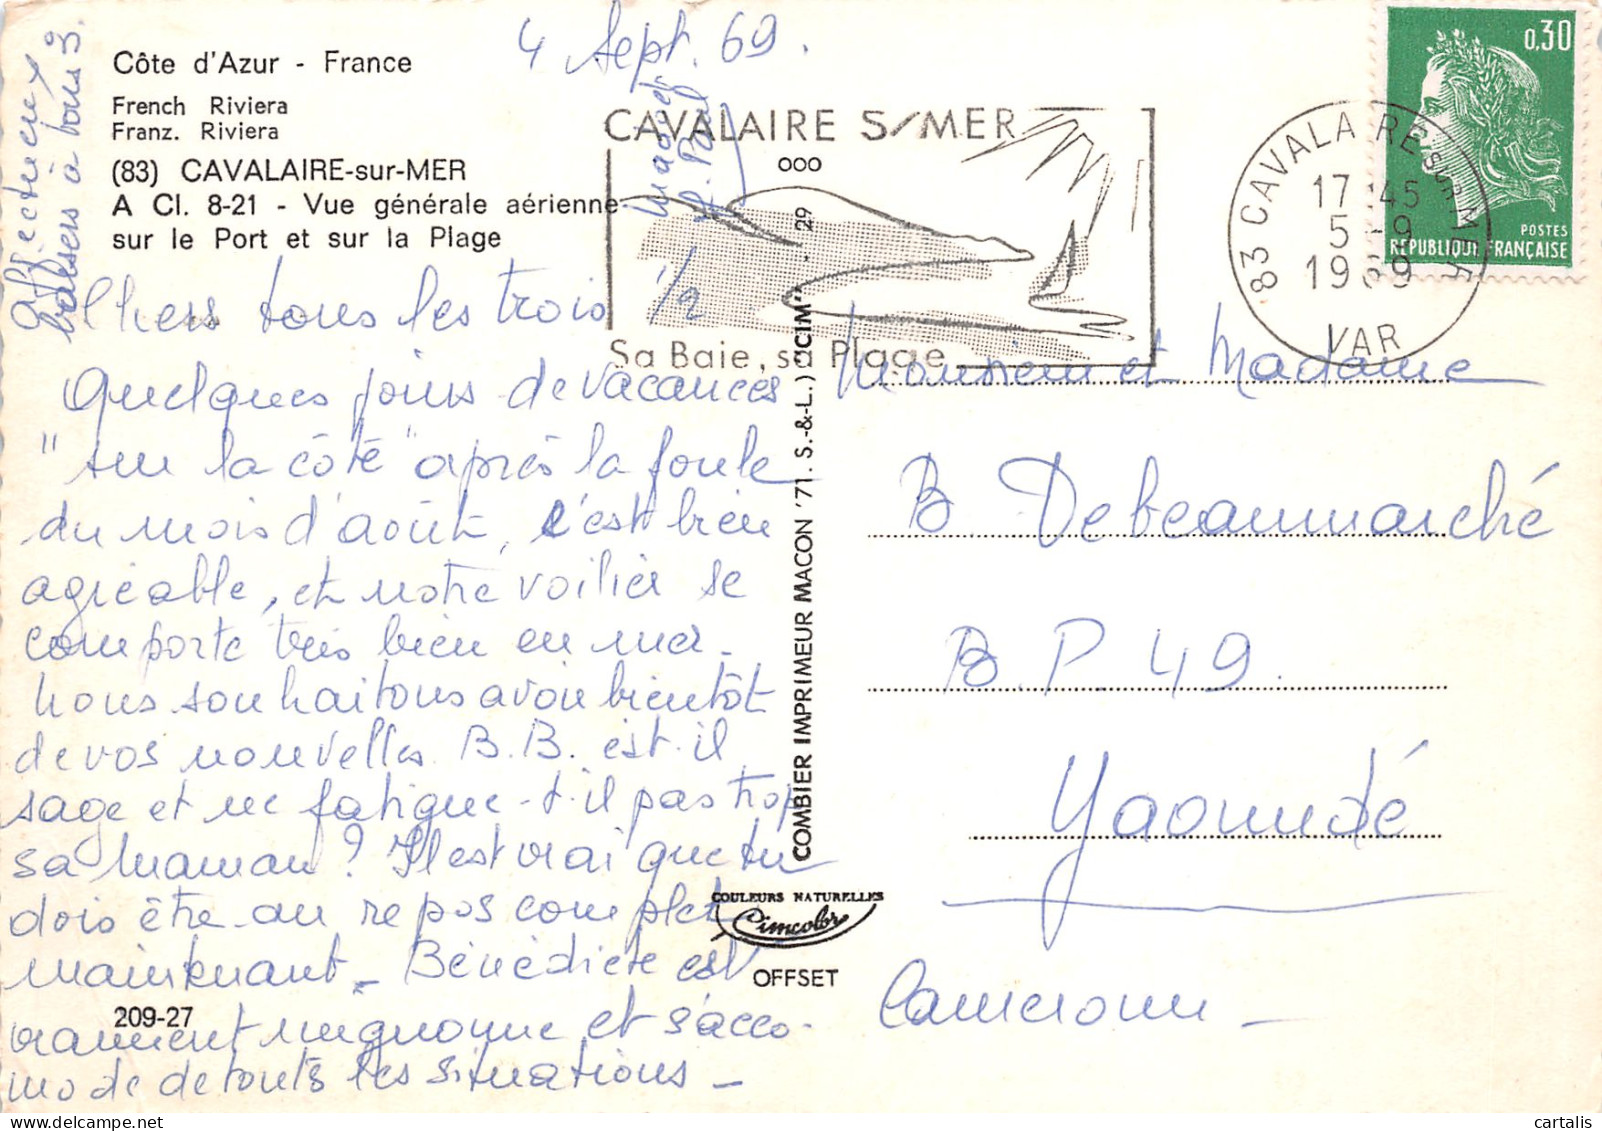 4 Sept. 69.
Côte d'Azur - France
French Riviera
Franz. Riviera
(83) CAVALAIRE-sur-MER
A Cl. 8-21 - Vue générale aérienne
sur le Port et sur la Plage
Chers tous les trois 1/2
Quelques jours de vacances
"sur la côte" après la foule
du mois d'août, c'est bien
agréable, et notre voilier se
comporte très bien en mer.
Nous souhaitons avoir bientôt
de vos nouvelles. B.B. est-il
sage et ne fatigue-t-il pas trop
sa maman? Il est vrai que tu
dois être au repos complet
maintenant - Bénédicte est
vraiment mignonne et s'acco-
mode de toutes les situations -
affectueux
baisers à vous 3.
Paul
209-27
CAVALAIRE S/MER
ooo
Sa Baie, sa Plage
83 CAVALAIRE SUR MER
17 45
5 -9
1969
VAR
0,30
POSTES
RÉPUBLIQUE FRANÇAISE
COMBIER IMPRIMEUR MACON '71. S.-&-L.) "CIM" - 29
COULEURS NATURELLES
Cimcolor
OFFSET
Monsieur et Madame
B Debeaumarché
B.P. 49.
Yaoundé
Cameroun -
cartalis